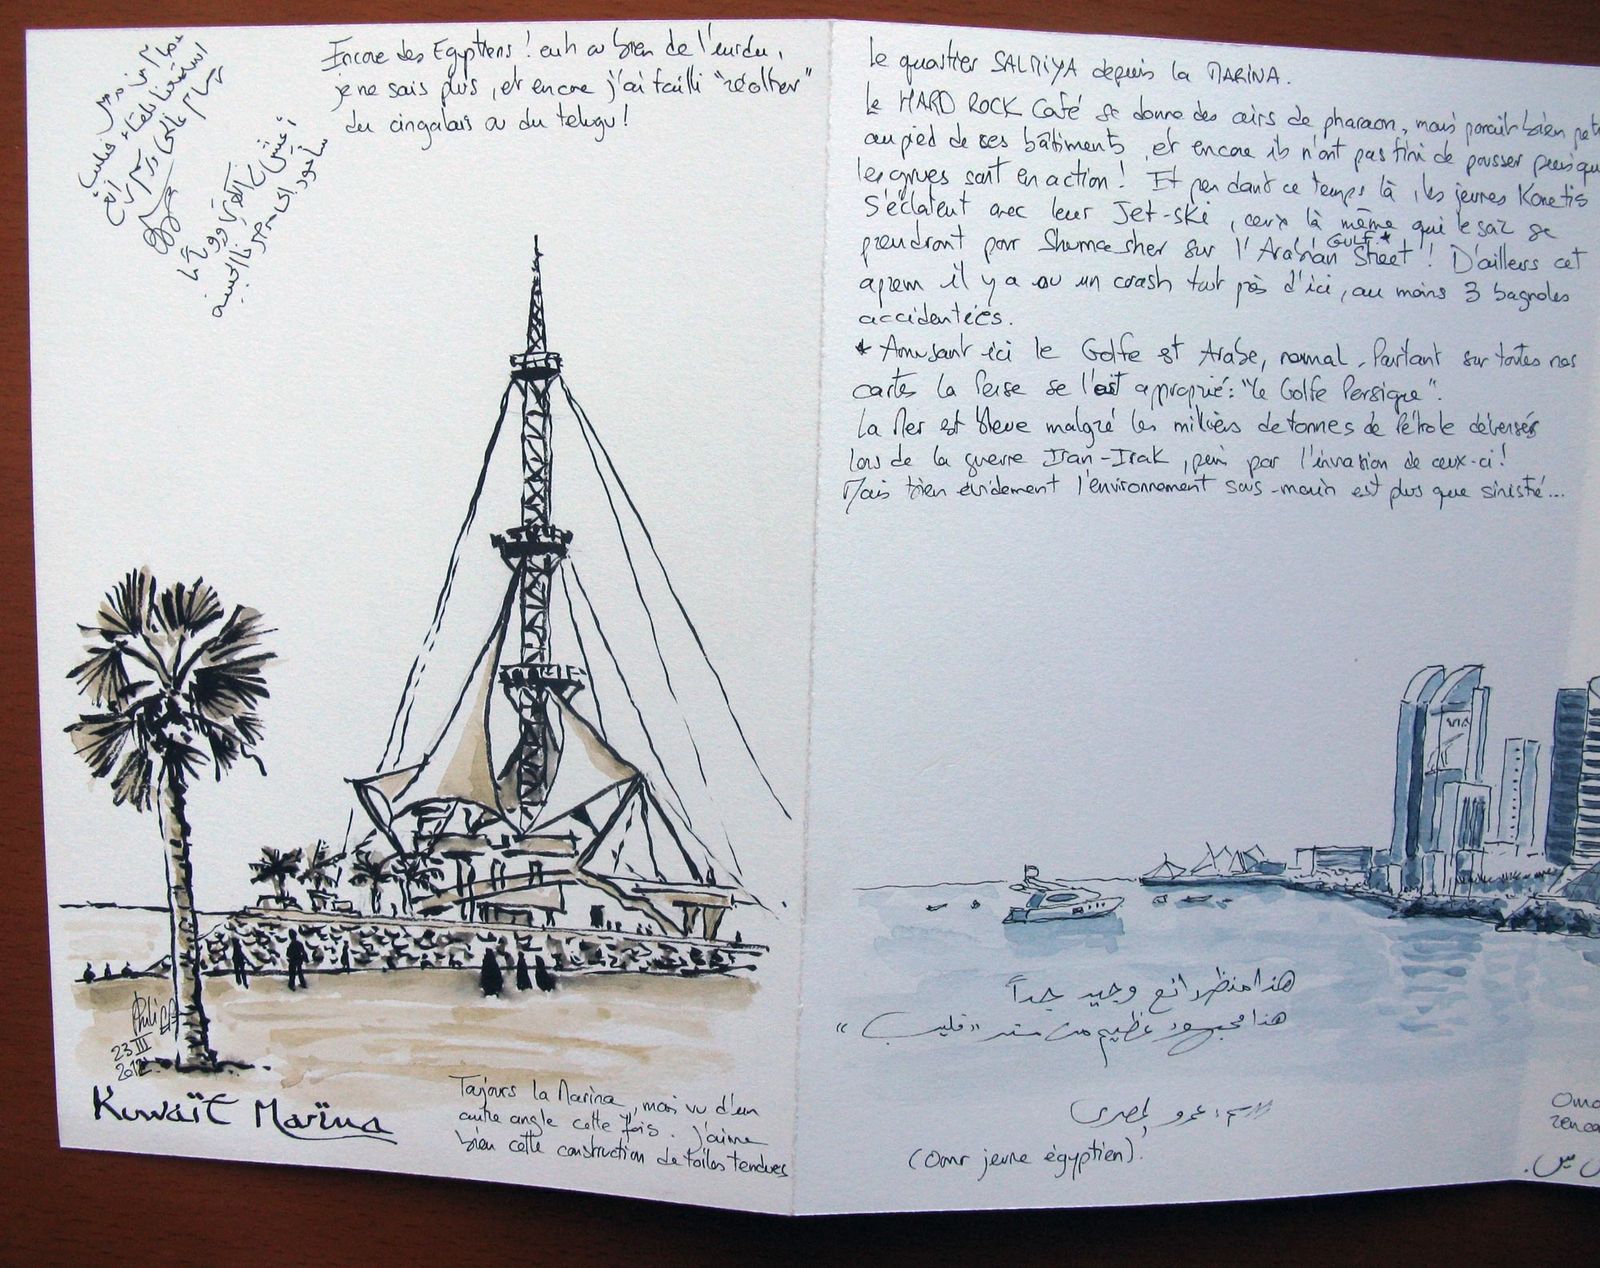 Encore des Egyptiens ! euh ou bien de l'urdu,
je ne sais plus, et encore j'ai failli "récolter"
du cingalais ou du telugu !
Philip
23 III
2012
Kuwaït Marina
Toujours la Marina, mais vu d'un
autre angle cette fois. J'aime
bien cette construction de toiles tendues
Le quartier SALMIYA depuis la MARINA.
Le HARD ROCK Café se donne des airs de pharaon, mais paraît bien
au pied de ses bâtiments, et encore ils n'ont pas fini de pousser
les grues sont en action ! Et pendant ce temps là, les jeunes Koweitis
s'éclatent avec leur Jet-ski, ceux là même qui le soir se
prendront pour Shumacher sur l'Arabian GULF* Street ! D'ailleurs cet
aprem il y a eu un crash tout près d'ici, au moins 3 bagnoles
accidentées.
* Amusant ici le Golfe est Arabe, normal. Partant sur toutes nos
cartes la Perse se l'est approprié : "le Golfe Persique".
La Mer est bleue malgré les milliers de tonnes de Pétrole déversés
lors de la guerre Iran-Irak, puis par l'invasion de ceux-ci !
Mais bien évidement l'environnement sous-marin est plus que sinistré...
هذا منظر رائع وجيد جداً
هذا مجهود عظيم من مستر "فليب"
عمرو المصري
(Omr jeune égyptien).